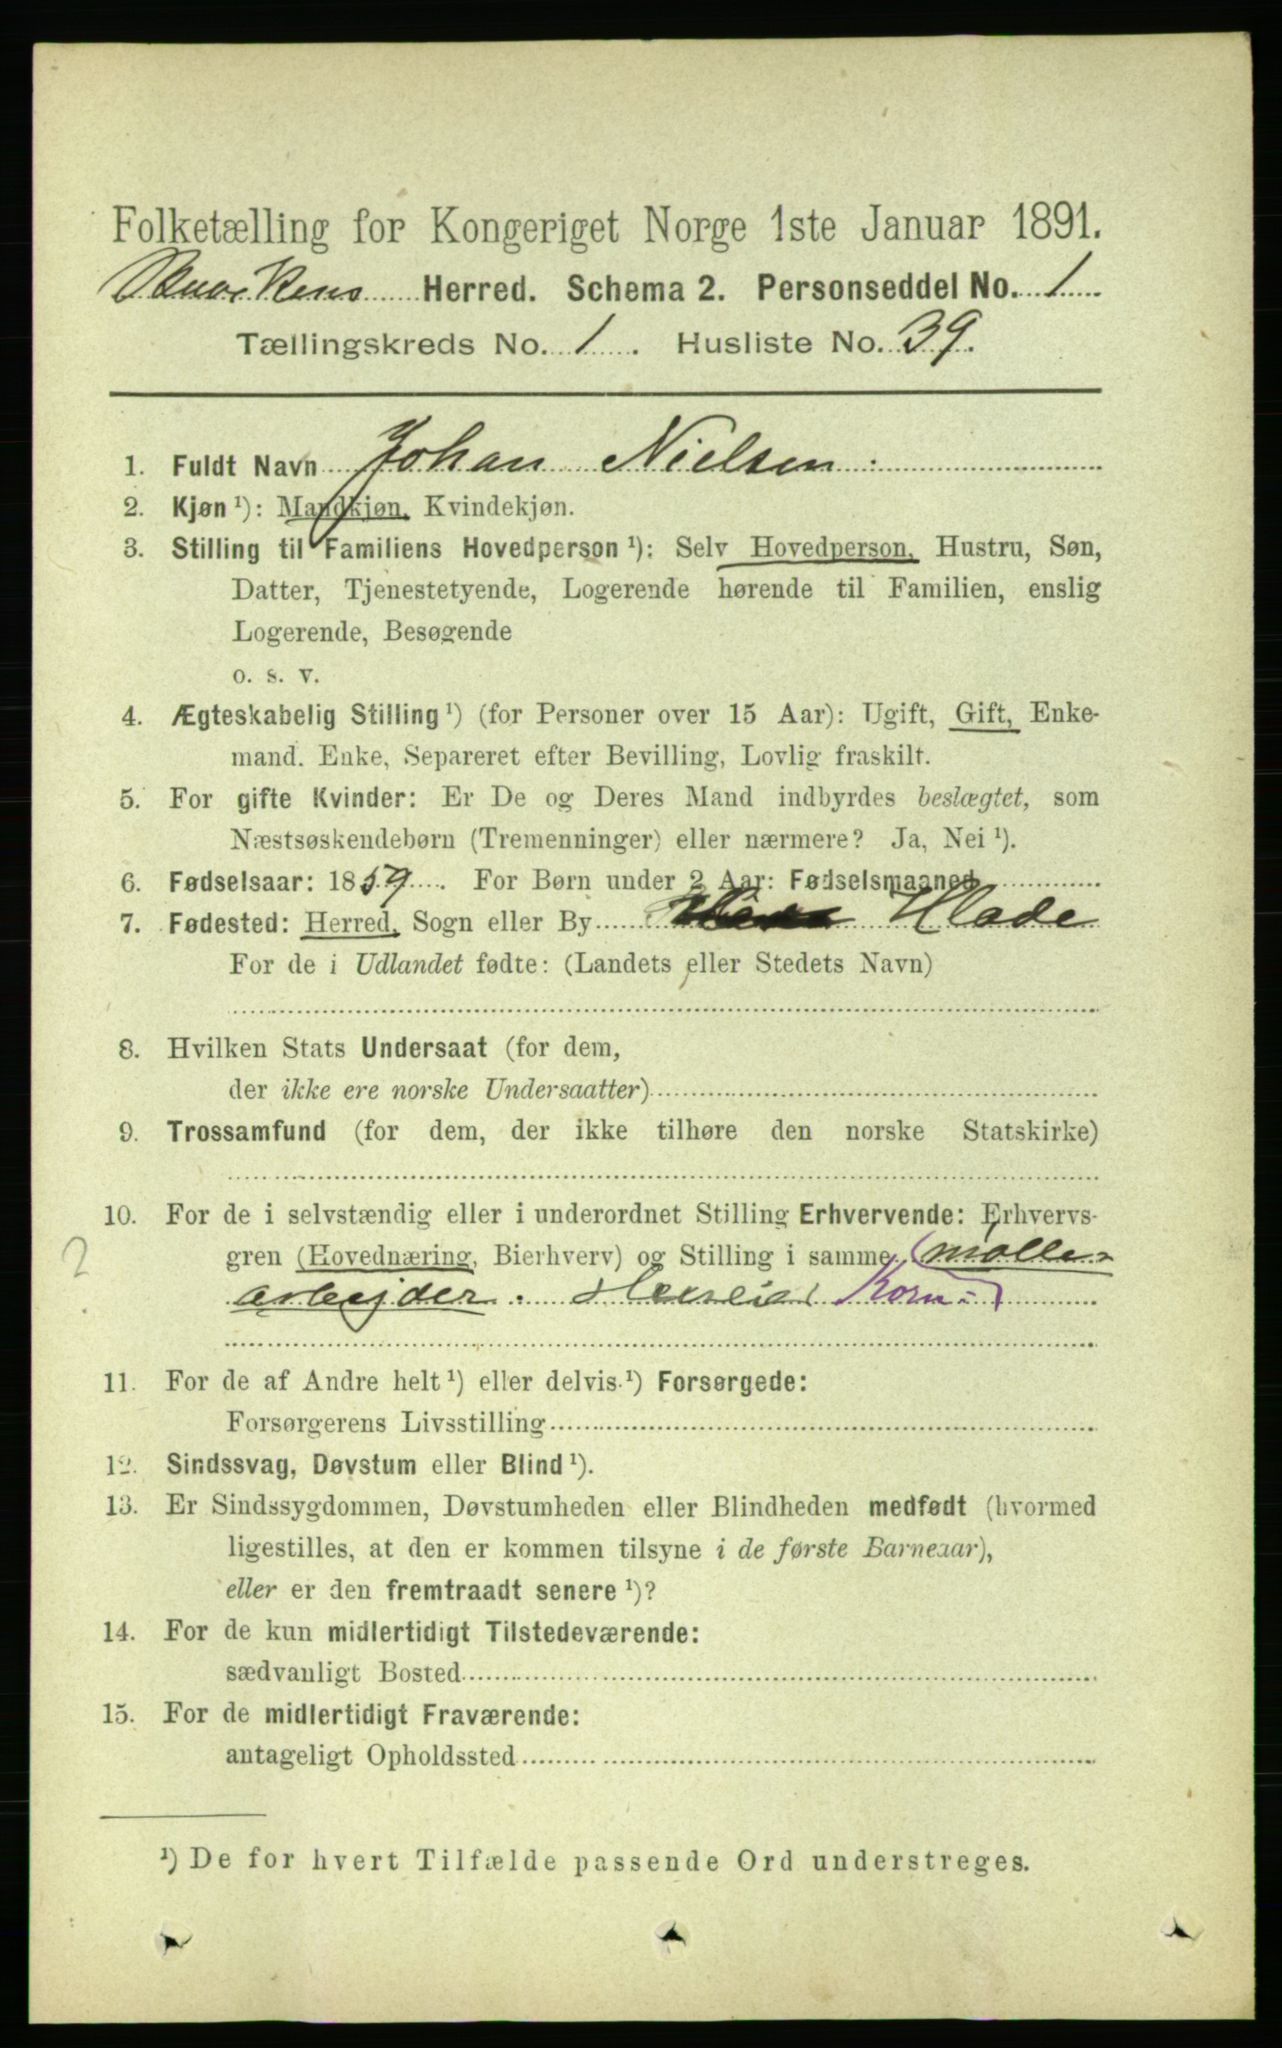 Folketælling for Kongeriget Norge 1ste Januar 1891.
Herred. Schema 2. Personseddel No. 1
Tællingskreds No. 1. Husliste No. 39.
1. Fuldt Navn Johan Nielsen
2. Kjøn ¹): Mandkjøn, Kvindekjøn.
3. Stilling til Familiens Hovedperson ¹): Selv Hovedperson, Hustru, Søn,
Datter, Tjenestetyende, Logerende hørende til Familien, enslig
Logerende, Besøgende
o. s. v.
4. Ægteskabelig Stilling ¹) (for Personer over 15 Aar): Ugift, Gift, Enke-
mand. Enke, Separeret efter Bevilling, Lovlig fraskilt.
5. For gifte Kvinder: Er De og Deres Mand indbyrdes beslægtet, som
Næstsøskendebørn (Tremenninger) eller nærmere? Ja, Nei ¹).
6. Fødselsaar: 1859. For Børn under 2 Aar: Fødselsmaaned
7. Fødested: Herred, Sogn eller By Hlade
For de i Udlandet fødte: (Landets eller Stedets Navn)
8. Hvilken Stats Undersaat (for dem,
der ikke ere norske Undersaatter)
9. Trossamfund (for dem, der ikke tilhøre den norske Statskirke)
10. For de i selvstændig eller i underordnet Stilling Erhvervende: Erhvervs-
gren (Hovednæring, Bierhverv) og Stilling i samme (mølle-
arbejder. Korn-)
2
11. For de af Andre helt ¹) eller delvis ¹) Forsørgede:
Forsørgerens Livsstilling
12. Sindssvag, Døvstum eller Blind ¹).
13. Er Sindssygdommen, Døvstumheden eller Blindheden medfødt (hvormed
ligestilles, at den er kommen tilsyne i de første Barneaar),
eller er den fremtraadt senere ¹)?
14. For de kun midlertidigt Tilstedeværende:
sædvanligt Bosted
15. For de midlertidigt Fraværende:
antageligt Opholdssted
¹) De for hvert Tilfælde passende Ord understreges.